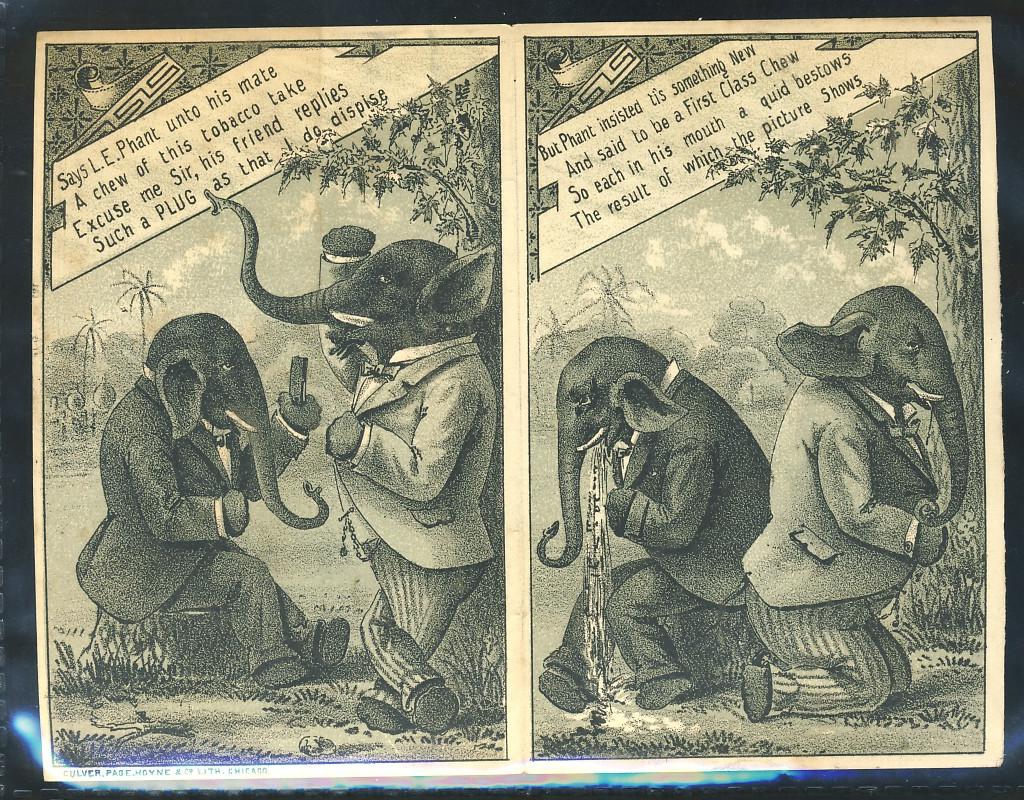 Says L.E.Phant unto his mate
A chew of this tobacco take
Excuse me Sir, his friend replies
Such a PLUG as that I do dispise
But Phant insisted tis something New
And said to be a First Class Chew
So each in his mouth a quid bestows
The result of which the picture Shows
CULVER, PAGE, HOYNE & Co LITH. CHICAGO